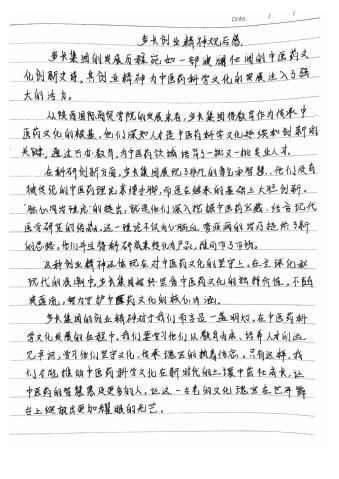 Date.
步长创业精神观后感
步长集团的发展历程宛如一部波澜壮阔的中医药文
化创新史诗,其创业精神为中医药科学文化的发展注入了强
大的活力。
从陕西国际商贸学院的发展来看,步长集团将教育作为传承中
医药文化的根基。他们深知人才是中医药科学文化延续和创新的
关键,通过兴办教育,为中医药领域培育了一批又一批专业人才。
在科研创新方面,步长集团展现了非凡的勇气和智慧。他们没有
被传统的中医药理论束缚手脚,而是在继承的基础上大胆创新。
"脑心同治理论"的提出,就是他们深入挖掘中医药宝藏,结合现代
医学研究的结晶。这一理论不仅为心脑血管疾病的治疗提供了新
的思路,他们并且将科研成果转化为产品,推向了市场。
这种创业精神还体现在对中医药文化的坚守上。在全球化和
现代化的浪潮中,步长集团始终坚信中医药文化的独特价值,不随
波逐流,努力守护中医药文化的核心内涵。
步长集团的创业精神对于我们而言是一盏明灯,在中医药科
学文化发展的征程中,我们要学习他们从教育为本、培养人才的远
见卓识,学习他们坚守文化、传承瑰宝的执着信念。只有这样,我
们才能推动中医药科学文化在新时代的土壤中茁壮成长,让
中医药的智慧惠及更多的人,让这一古老的文化瑰宝在世界舞
台上绽放出更加耀眼的光芒。